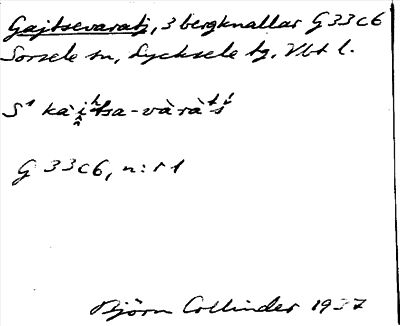 Gajtsevaratj, 3 bergknallar G 33 c 6
Sorsele sn, Lycksele tg, Vbt l.
G 33 c 6, n:r 1
Björn Collinder 1937